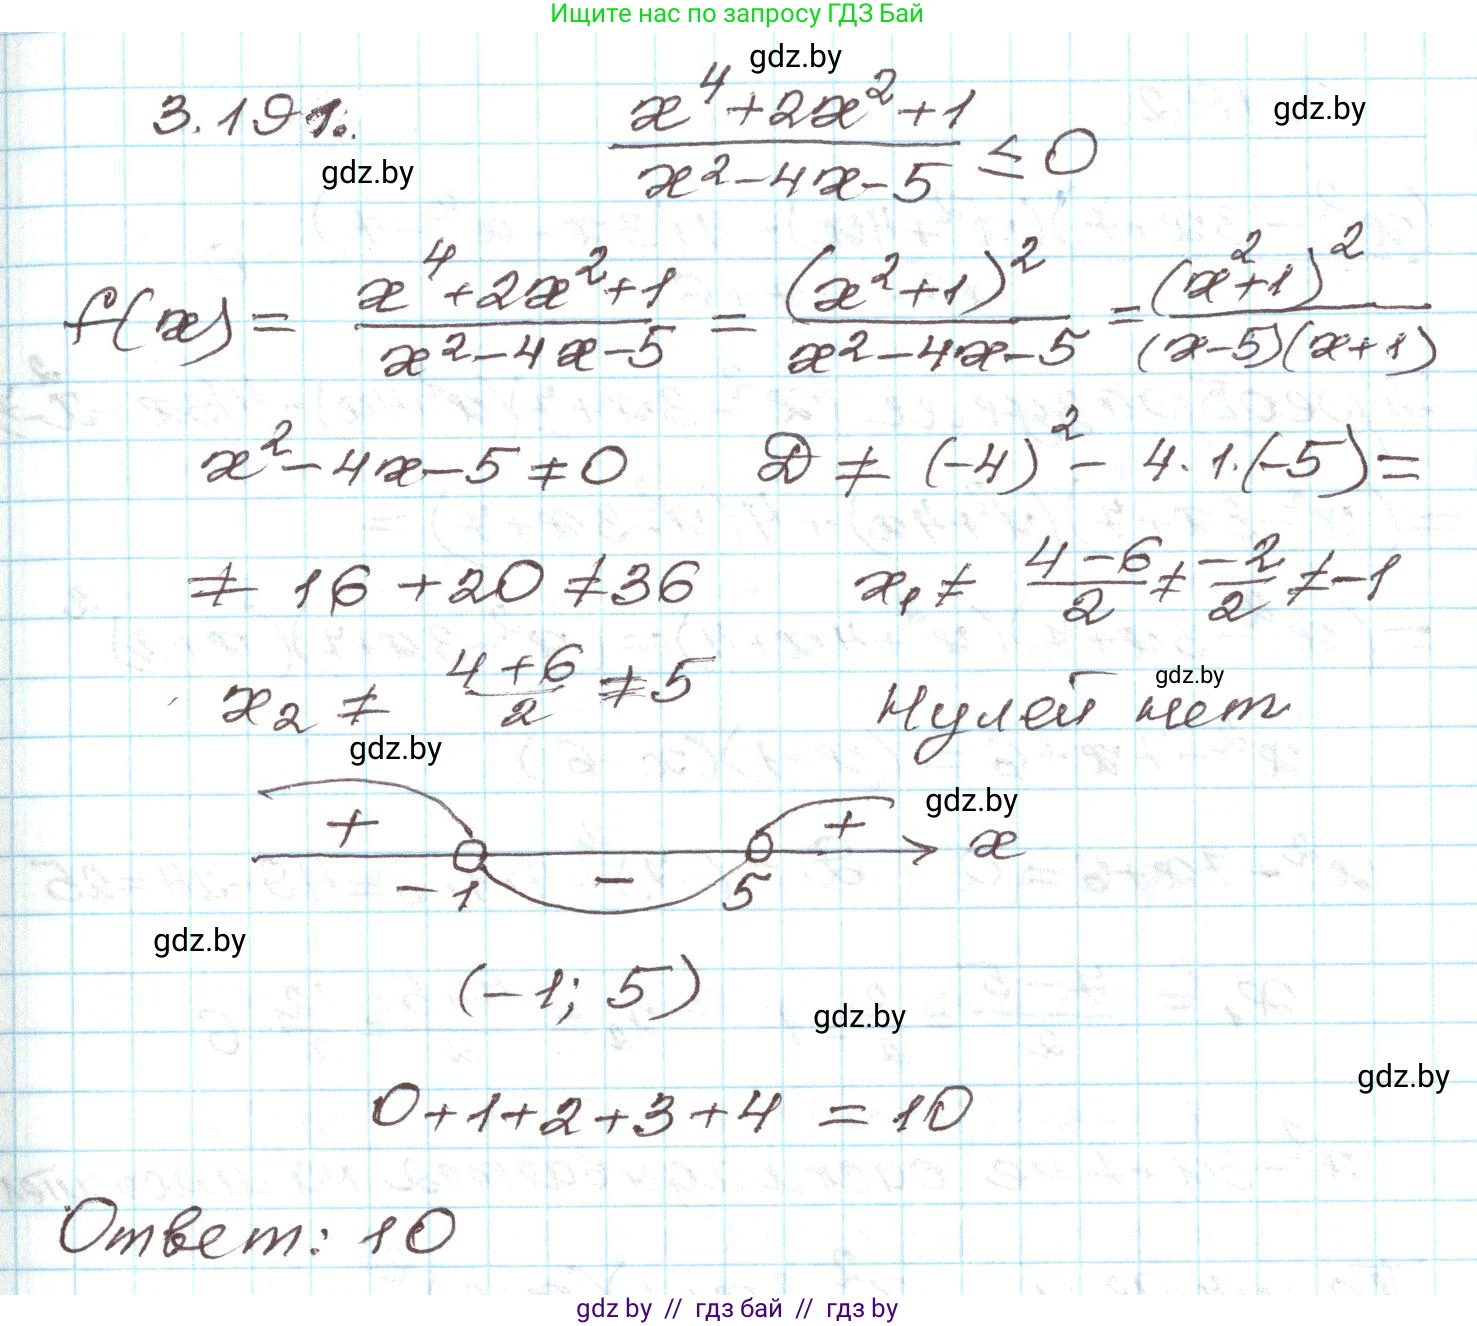 Ищите нас по запросу ГДЗ Бай
gdz.by
3.191.
x^4+2x^2+1 / x^2-4x-5 ≤ 0
gdz.by
gdz.by
f(x) = x^4+2x^2+1 / x^2-4x-5 = (x^2+1)^2 / x^2-4x-5 = (x^2+1)^2 / (x-5)(x+1)
x^2-4x-5≠0 D ≠ (-4)^2 - 4·1·(-5) =
≠ 16+20≠36 x1 ≠ 4-6 / 2 ≠ -2 / 2 ≠ -1
x2 ≠ 4+6 / 2 ≠5 Нулей нет
gdz.by
gdz.by
gdz.by
+ - + x
-1 5
gdz.by
(-1; 5)
gdz.by
gdz.by
0+1+2+3+4 = 10
Ответ: 10
gdz by // гдз бай // гдз by